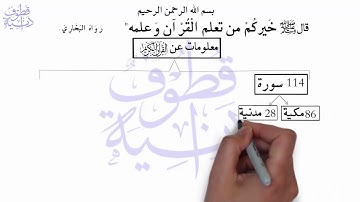 بسم الله الرحمن الرحيم
قال ﷺ خَيركُمْ من تعلم الْقُرْآن وَعلمه"
رواه البخاري
معلومات عن القرآن الكريم
114 سورة
86 مكية
28 مدنية
قطوف دانية
قطوف دانية